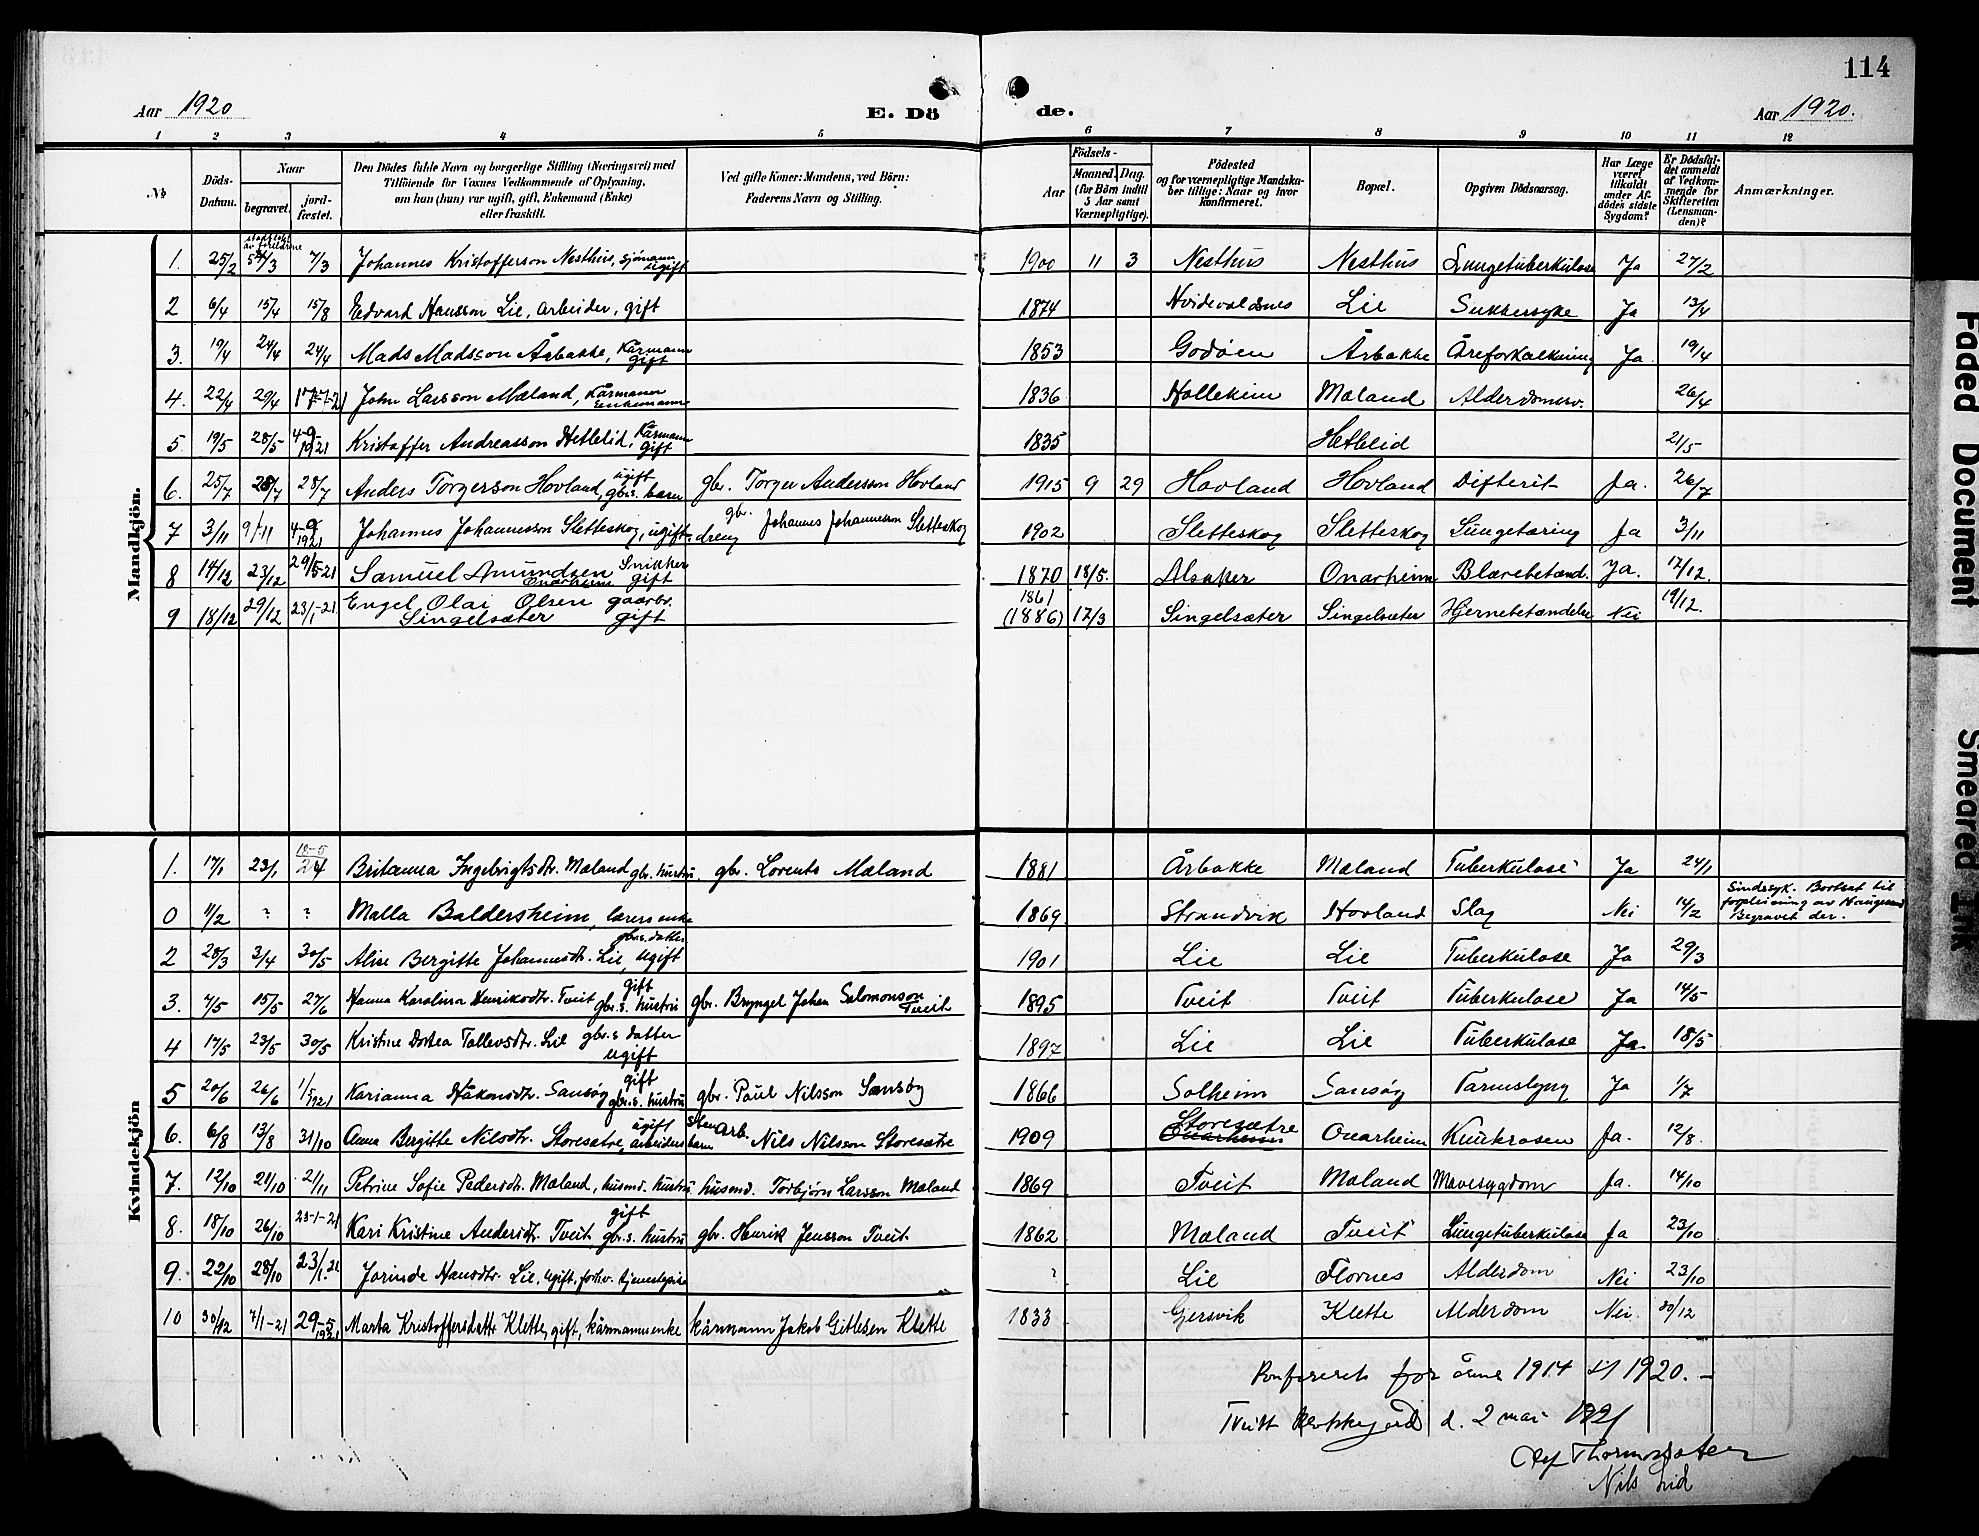 114
Aar 1920 E. Dö de. Aar 1920.
1 2 3 4 5 6 7 8 9 10 11 12
№ Döds-Datum. Naar begravet. jordfæstet. Den Dödes fulde Navn og borgerlige Stilling (Næringsvei) med Tilföiende for Voxnes Vedkommende af Oplysning, om han (hun) var ugift, gift, Enkemand (Enke) eller fraskilt. Ved gifte Koner: Mandens, ved Börn: Faderens Navn og Stilling. Födsels- Aar Maaned. Dag. (for Börn indtil 5 Aar samt Værnepligtige). Födested og for værnepligtige Mandskaber tillige: Naar og hvor Konfirmeret. Bopæl. Opgiven Dödsaarsag. Har Læge været tilkaldt under Afdödes sidste Sygdom? Er Dödsfaldet anmeldt af Vedkommende for Skifteretten (Lensmanden)? Anmærkninger.
Mandkjön.
1. 25/2 5/3 7/3 Johannes Kristofferson Nesthus, sjömann ugift 1900 11 3 Nesthus Nesthus Lungetuberkulose Ja 27/2
2 6/4 15/4 15/8 Edvard Hansson Lie, arbeider, gift 1874 Hvidevoldsnes Lie Sukkersyke Ja 13/4
3. 19/4 24/4 24/4 Mads Madsson Årbakke, Kårmann gift 1853 Godöen Årbakke Åreforkalkning Ja 19/4
4. 22/4 29/4 17-7-21 John Larsson Mæland, Kårmann Enkemann 1836 Hollekim Mæland Alderdomssv. 26/4
5. 19/5 28/5 4-9-1921 Kristoffer Andreasson Hetlelid, Kårmann gift 1835 Hetlelid 21/5
6. 25/7 28/7 28/7 Anders Torgerson Hovland, ugift gbr.s. barn gbr. Torger Andersson Hovland 1915 9 29 Hovland Hovland Difterit Ja. 26/7
7 3/11 9/11 4-9 1921 Johannes Johannesson Sletteskog, ugift dreng gbr. Johannes Johannesson Sletteskog 1902 Sletteskog Sletteskog Lungetæring Ja 3/11
8 14/12 23/12 29/5-21 Samuel Amundsen Onarheim Snikker gift 1870 18/5. Alsaker Onarheim Blærebetænd. Ja. 17/12.
9 18/12 29/12 23/1-21 Engel Olai Olsen Singelsæter gaarbr. gift 1861 (1886) 17/3 Singelsæter Singelsæter Hjernebetændelse Nei 19/12.
Kvindekjön
1. 17/1 23/1 18-5 24 Britanna Ingebrigtsdtr. Mæland gbr. hustru. gbr. Lorents Mæland 1881 Årbakke Mæland Tuberkulose Ja 24/1
0 11/2 ? ? Malla Baldersheim, lærers enke 1869 Strandvik Hovland Slag Nei 14/2 Sindssyk. Bortsat til forpleining av Haugesund Begravet der.
2 28/3 3/4 30/5 Alise Bergitte Johannesdtr. Lie, gbr.s. datter ugift 1901 Lie Lie Tuberkulose Ja 29/3
3. 7/5 15/5 27/6 Hanna Karolina Henriksdtr. Tveit gift gbr.s. hustru gbr. Bryngel Johan Salomonson Tveit 1895 Tveit Tveit Tuberkulose Ja 14/5
4 17/5 23/5 30/5 Kristine Dortea Tollevsdtr. Lie gbr.s datter ugift 1897 Lie Lie Tuberkulose Ja. 18/5
5 20/6 26/6 1/5 1921 Karianna Håkonsdtr. Sansöy gift gbr.s. hustru gbr. Paul Nilsson Sansöy 1866 Solheim Sansöy Tarmslyng Ja 1/7
6. 6/8 13/8 31/10 Anna Bergitte Nilsdtr. Storesætre, ugift arbeiders barn Stenarb. Nils Nilsson Storesætre 1909 Storesætre Onarheim Onarheim Knutrosen Ja. 12/8.
7. 12/10 21/10 21/11 Petrine Sofie Pedersdtr. Mæland, husmd. hustru husmd. Torbjörn Larsson Mæland 1869 Tveit Mæland Mavesygdom Ja. 14/10
8. 18/10 26/10 23-1-21 Kari Kristine Andersdtr. Tveit gift gbr.s. hustru gbr. Henrik Jensson Tveit 1862 Mæland Tveit Lungetuberkulose Ja 23/10
9. 22/10 28/10 23/1.21 Jorinde Hansdtr. Lie, ugift, forhv. tjenestepike ? Lie Flornes Alderdom Nei 23/10
10 30/12 7/1-21 29-5 1921 Marta Kristoffersdtr Klette, gift, kårmannsenke kårmann Jakob Gitlesen Klette 1833 Gjersvik Klette Alderdom Nei. 30/12
Konfereret for årene 1914 til 1920. –
Tveitt d. 2 mai 1921
Nils Lid
Faded Document Smeared Ink